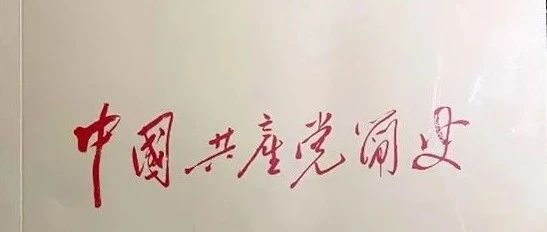 中國共產党简史